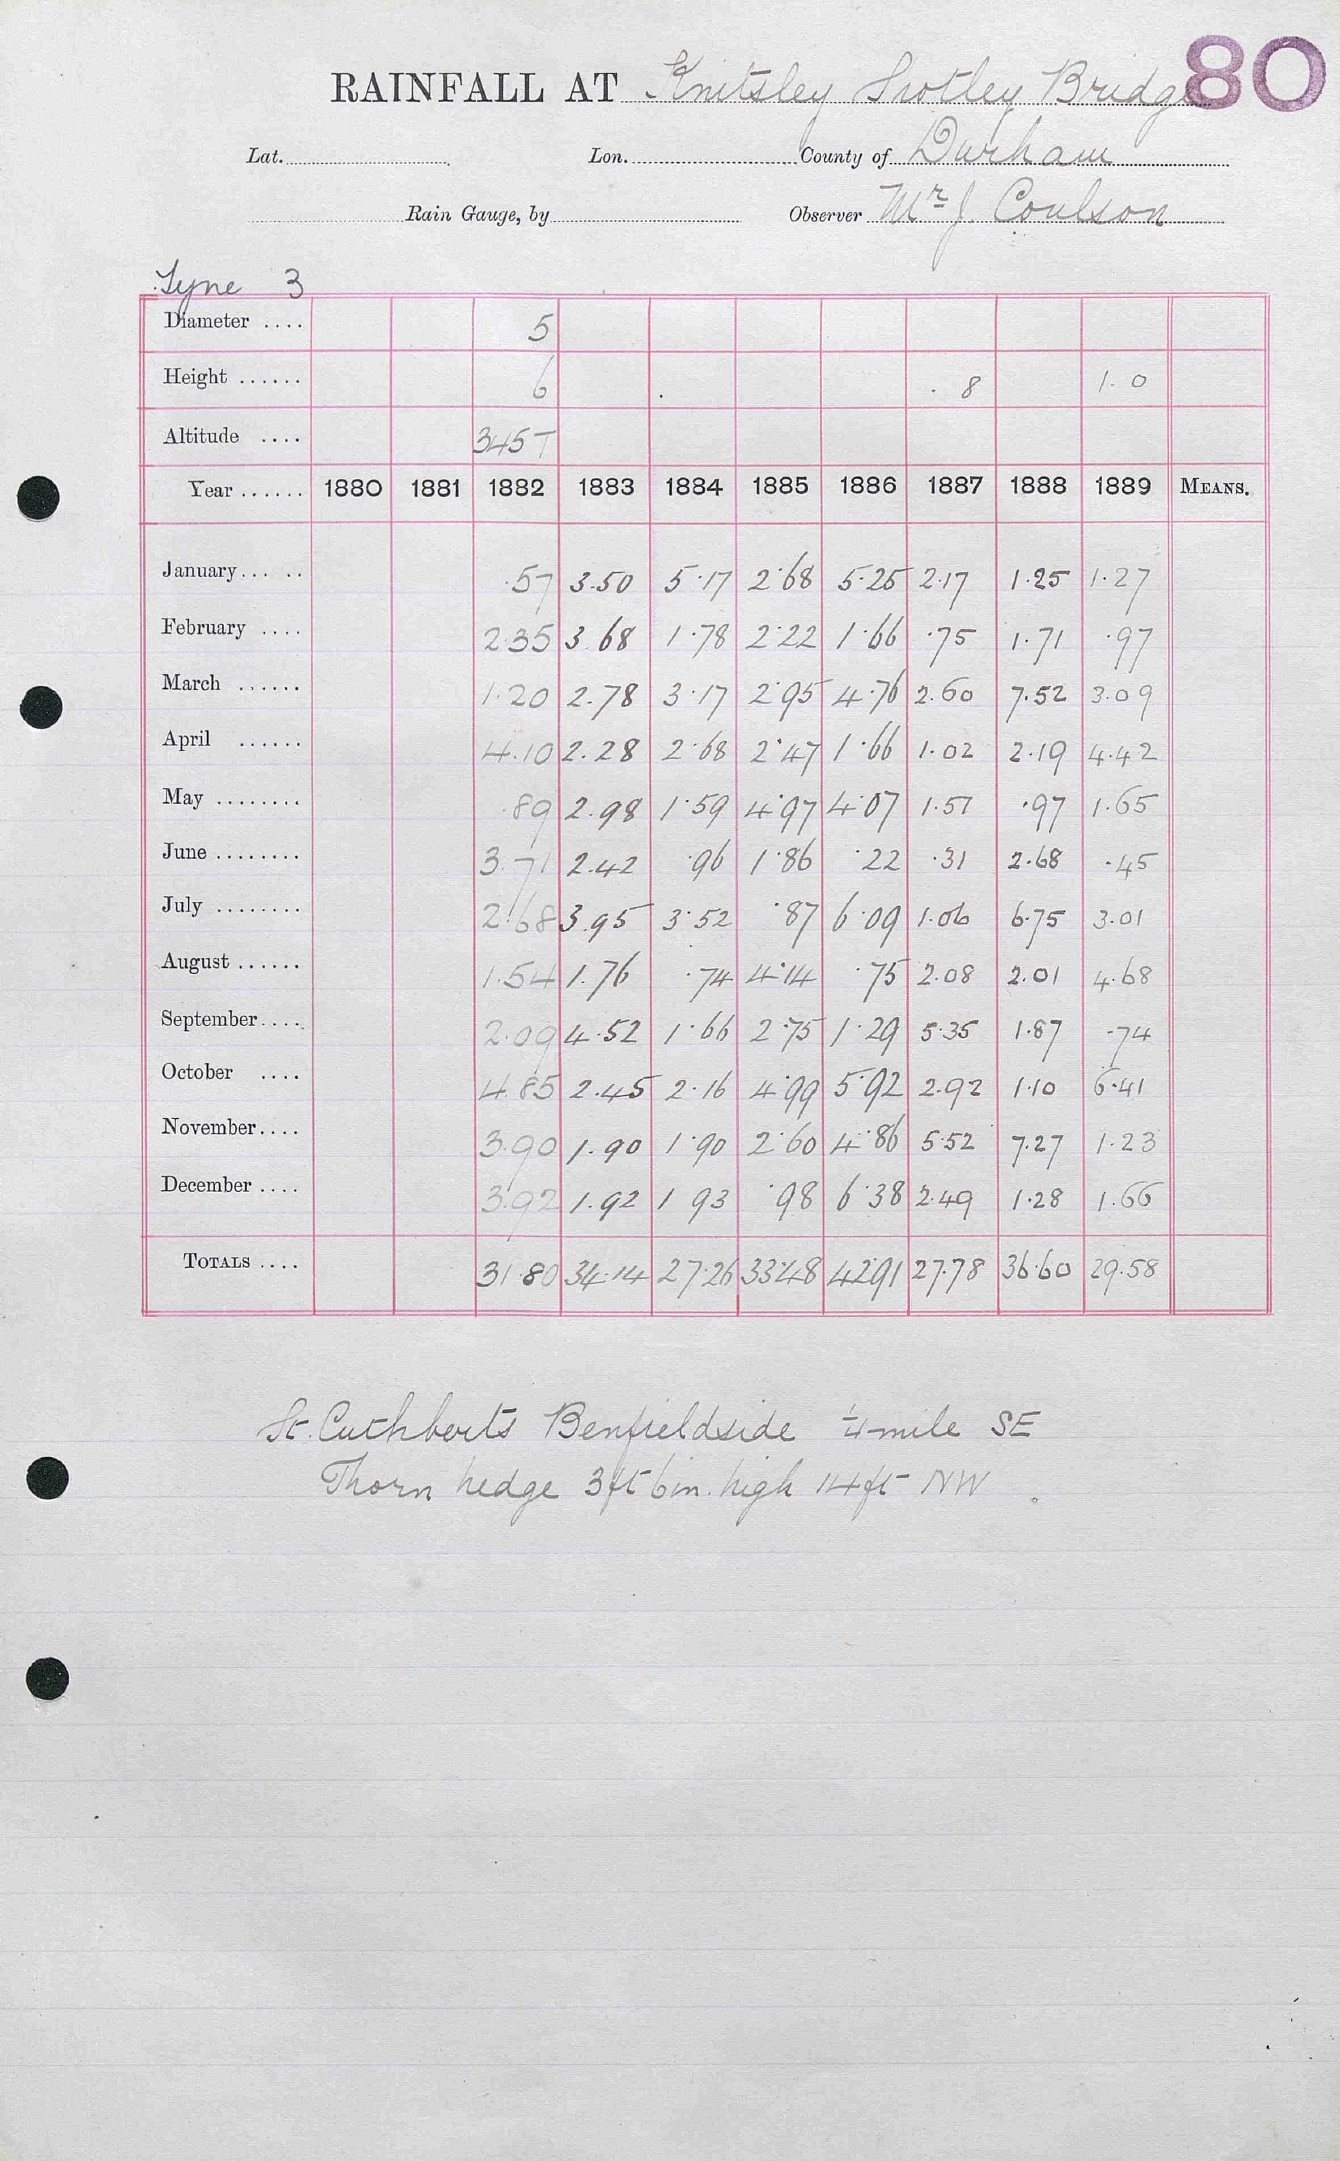 80
RAINFALL AT Knitsley Shotley Bridge
Lat. Lon. County of Durham
Rain Gauge, by Observer Mr J. Coulson
Tyne 3
Diameter .... 5
Height ...... 6 . 8 1.0
Altitude .... 345 T
Year ...... 1880 1881 1882 1883 1884 1885 1886 1887 1888 1889 MEANS.
January... .. .57 3.50 5.17 2.68 5.25 2.17 1.25 1.27
February .... 2.35 3.68 1.78 2.22 1.66 .75 1.71 .97
March ...... 1.20 2.78 3.17 2.95 4.76 2.60 7.52 3.09
April ...... 4.10 2.28 2.68 2.47 1.66 1.02 2.19 4.42
May ........ .89 2.98 1.59 4.97 4.07 1.51 .97 1.65
June ........ 3.71 2.42 .96 1.86 .22 .31 2.68 .45
July ........ 2.68 3.95 3.52 .87 6.09 1.06 6.75 3.01
August ...... 1.54 1.76 .74 4.14 .75 2.08 2.01 4.68
September.... 2.09 4.52 1.66 2.75 1.29 5.35 1.87 .74
October .... 4.85 2.45 2.16 4.99 5.92 2.92 1.10 6.41
November.... 3.90 1.90 1.90 2.60 4.86 5.52 7.27 1.23
December .... 3.92 1.92 1 93 .98 6.38 2.49 1.28 1.66
TOTALS .... 31.80 34.14 27.26 33.48 42.91 27.78 36.60 29.58
St. Cuthberts Benfieldside ¼ mile SE
Thorn hedge 3ft 6in. high 14ft NW.